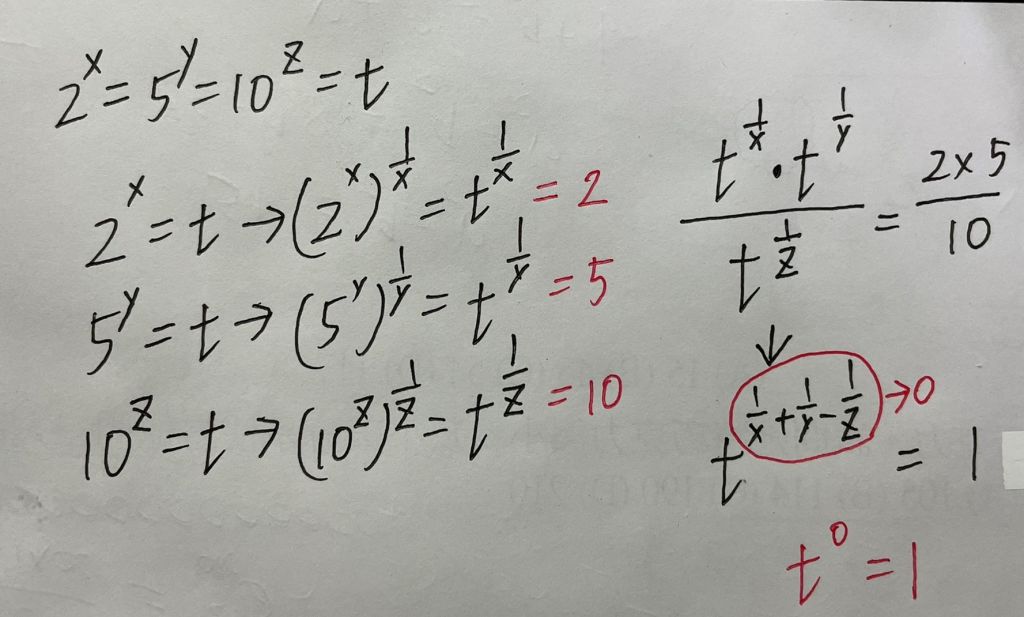 2^x = 5^y = 10^z = t
2^x = t → (2^x)^(1/x) = t^(1/x) = 2
5^y = t → (5^y)^(1/y) = t^(1/y) = 5
10^z = t → (10^z)^(1/z) = t^(1/z) = 10
(t^(1/x) · t^(1/y)) / t^(1/z) = (2 × 5) / 10
↓
t^(1/x + 1/y - 1/z) = 1
→ 0
t^0 = 1